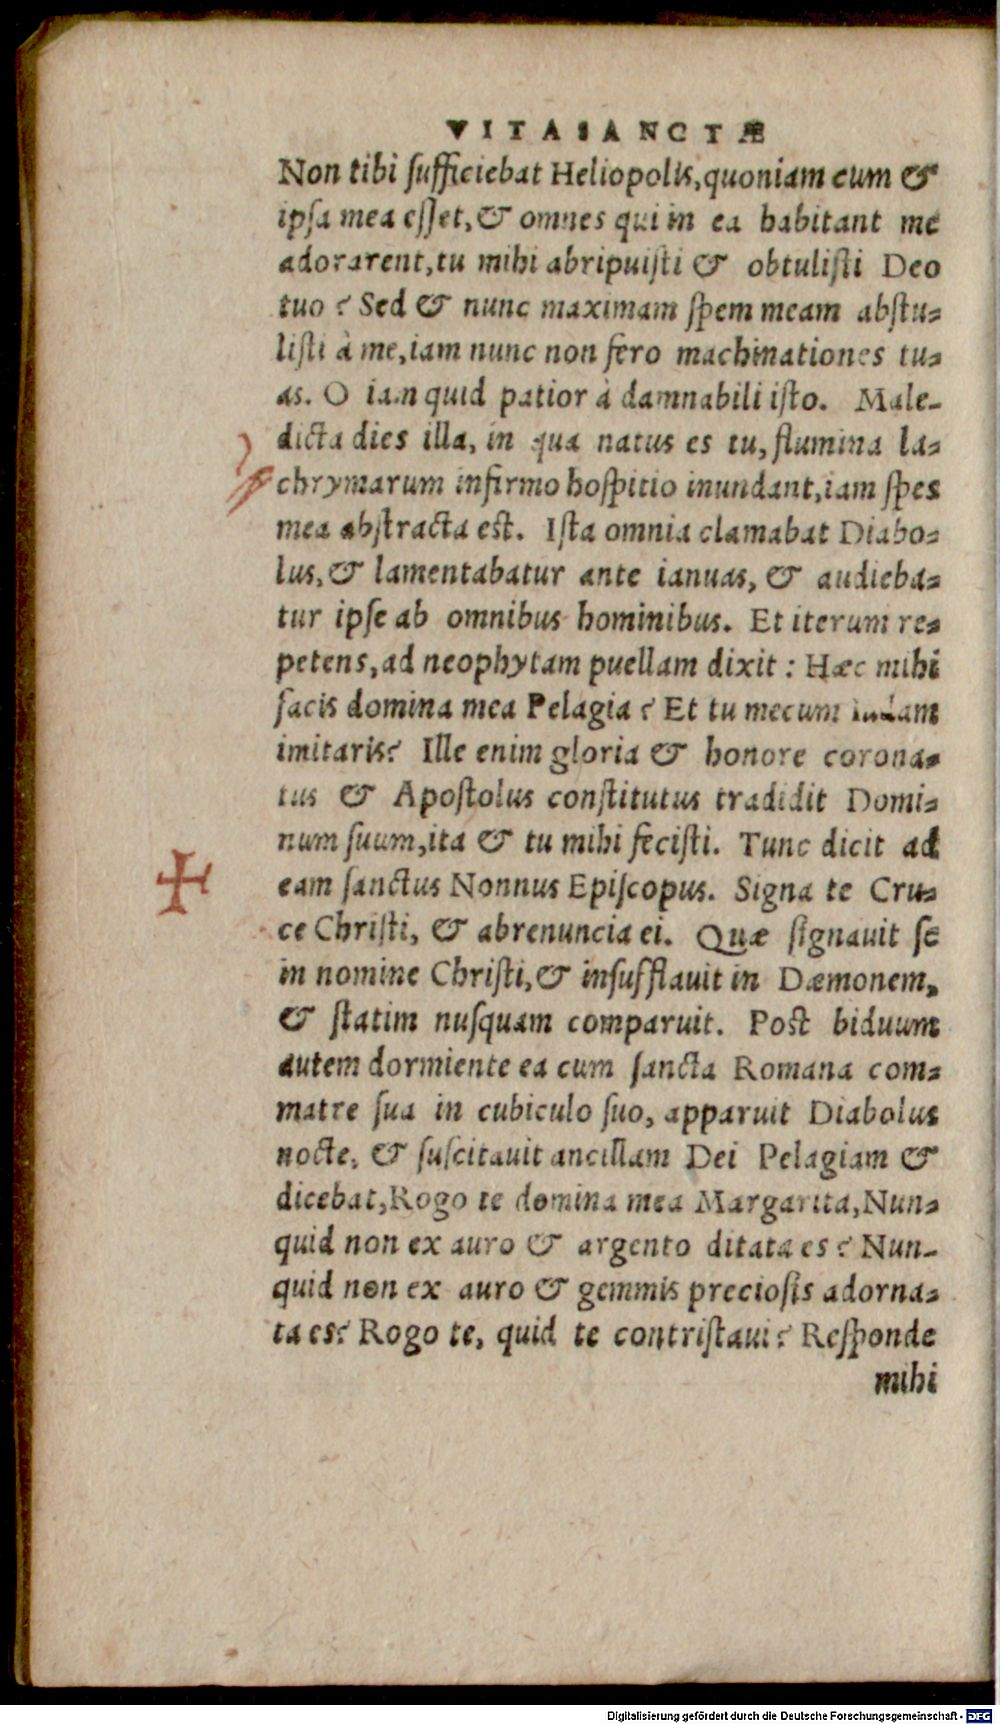 VITA SANCTÆ
Non tibi sufficiebat Heliopolis, quoniam cum &
ipsa mea esset, & omnes qui in ea habitant me
adorarent, tu mihi abripuisti & obtulisti Deo
tuo? Sed & nunc maximam spem meam abstu-
listi à me, iam nunc non fero machinationes tu-
as. O iam quid patior à damnabili isto. Male-
dicta dies illa, in qua natus es tu, flumina la-
chrymarum infirmo hospitio inundant, iam spes
mea abstracta est. Ista omnia clamabat Diabo-
lus, & lamentabatur ante ianuas, & audieba-
tur ipse ab omnibus hominibus. Et iterum re-
petens, ad neophytam puellam dixit: Hæc mihi
facis domina mea Pelagia? Et tu mecum Iudam
imitaris? Ille enim gloria & honore corona-
tus & Apostolus constitutus tradidit Domi-
num suum, ita & tu mihi fecisti. Tunc dicit ad
eam sanctus Nonnus Episcopus. Signa te Cru-
ce Christi, & abrenuncia ei. Quæ signauit se
in nomine Christi, & insufflauit in Dæmonem,
& statim nusquam comparuit. Post biduum
autem dormiente ea cum sancta Romana com-
matre sua in cubiculo suo, apparuit Diabolus
nocte, & suscitauit ancillam Dei Pelagiam &
dicebat, Rogo te domina mea Margarita, Nun-
quid non ex auro & argento ditata es? Nun-
quid non ex auro & gemmis preciosis adorna-
ta es? Rogo te, quid te contristaui? Responde
mihi
Digitalisierung gefördert durch die Deutsche Forschungsgemeinschaft - DFG